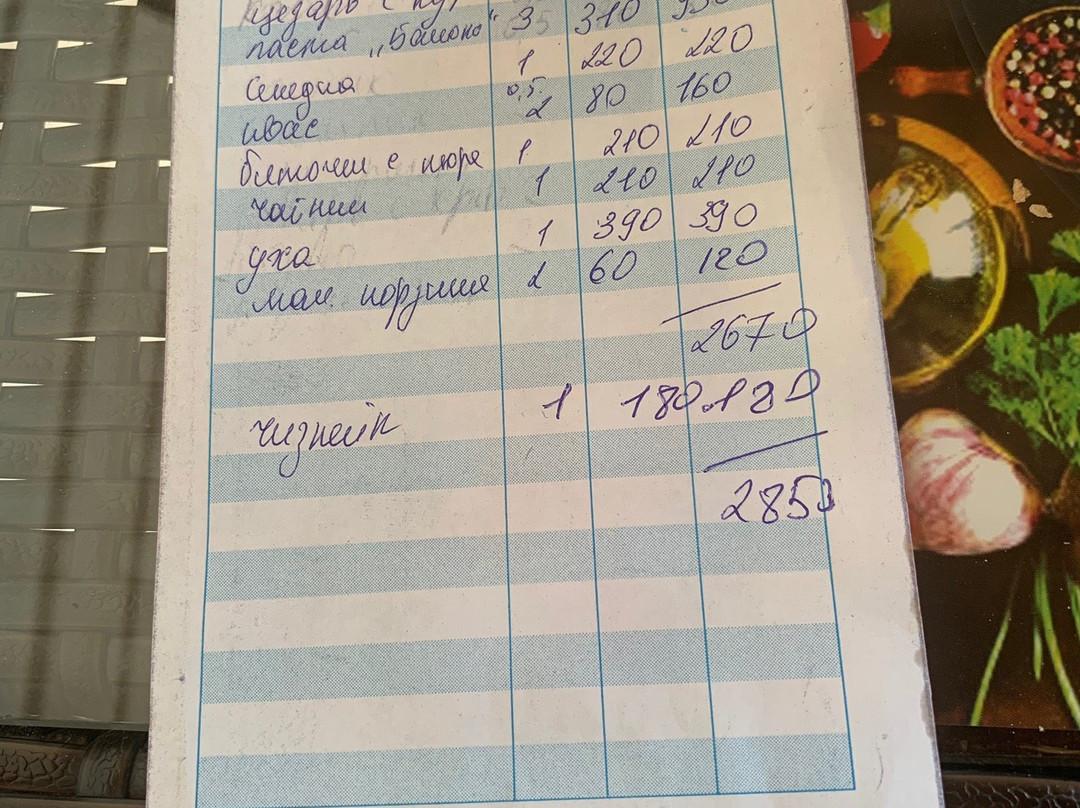 Цезарь с
паста 3 310 930
Селедка 1 220 220
квас 0,5 2 80 160
биточки с пюре 1 210 210
чайник 1 210 210
уха 1 390 390
мал. порция 2 60 120
2670
чизкейк 1 180 180
2850